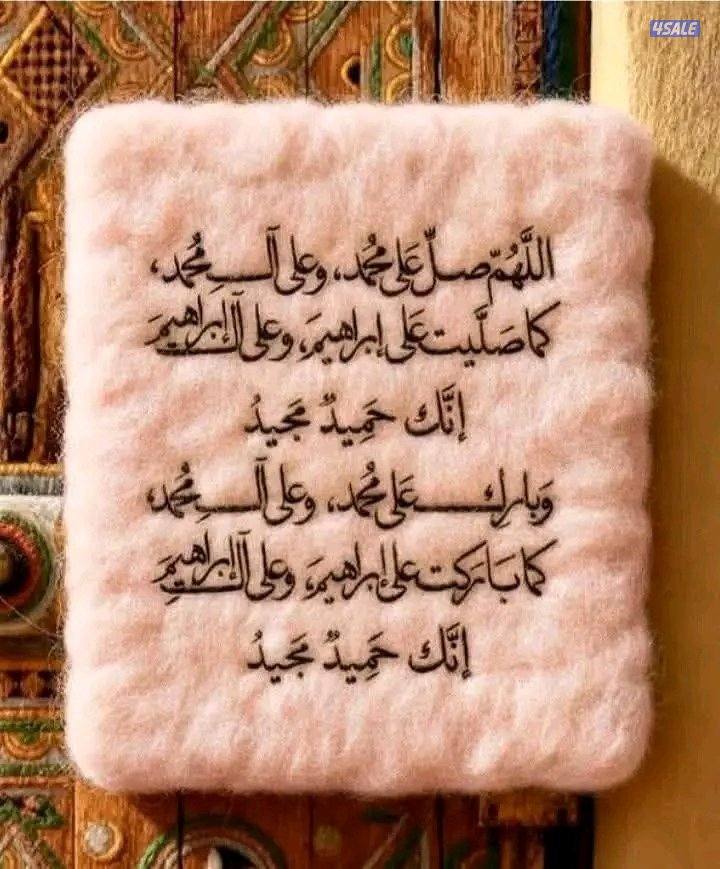 4SALE
اللَّهُمّ صلِّ عَلى مُحمد، وعلى آل مُحمد،
كما صَلَّيت عَلى إبراهيمَ، وعلى آل إبراهيمَ
إنَّك حَمِيدٌ مَجيدُ
وَبارِك عَلى مُحمد، وعلى آل مُحمد،
كما بَارَكت على إبراهيمَ، وعلى آل إبراهيمَ
إنَّك حَمِيدٌ مَجيدُ